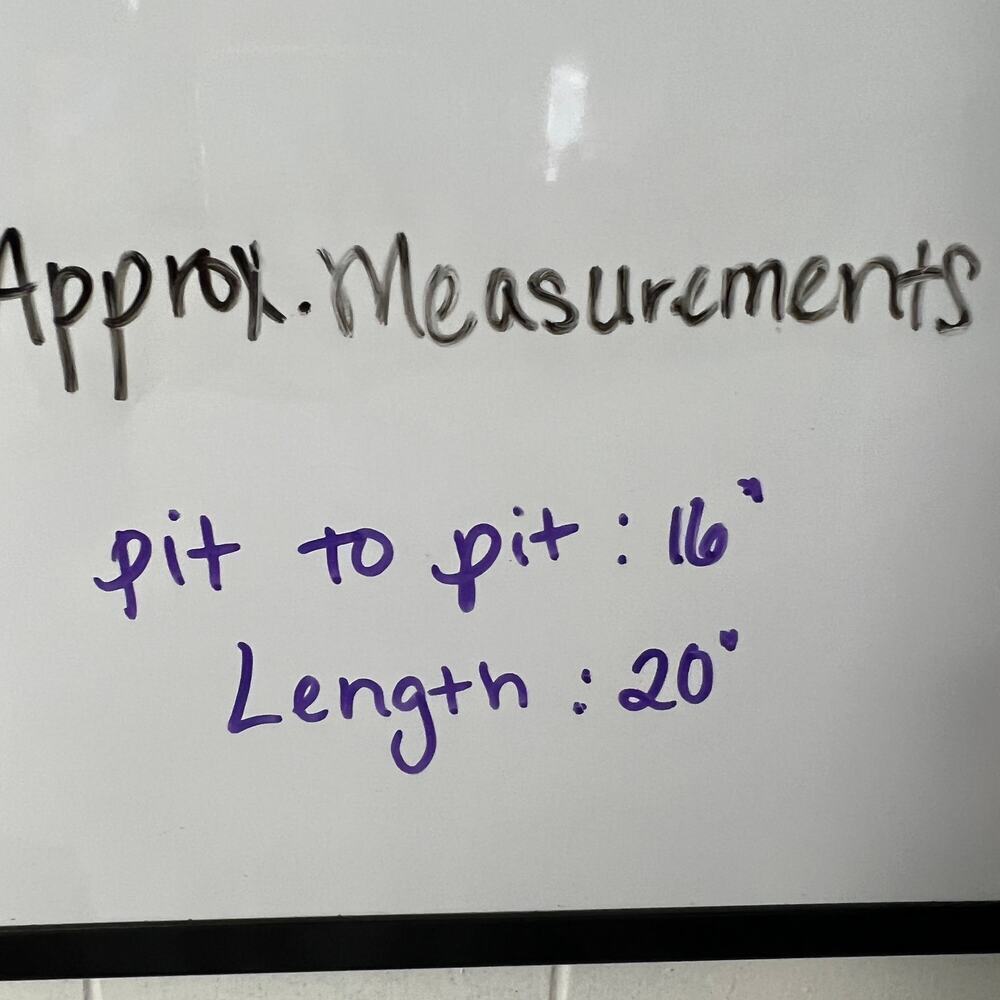 Approx. Measurements
pit to pit : 16"
Length : 20"